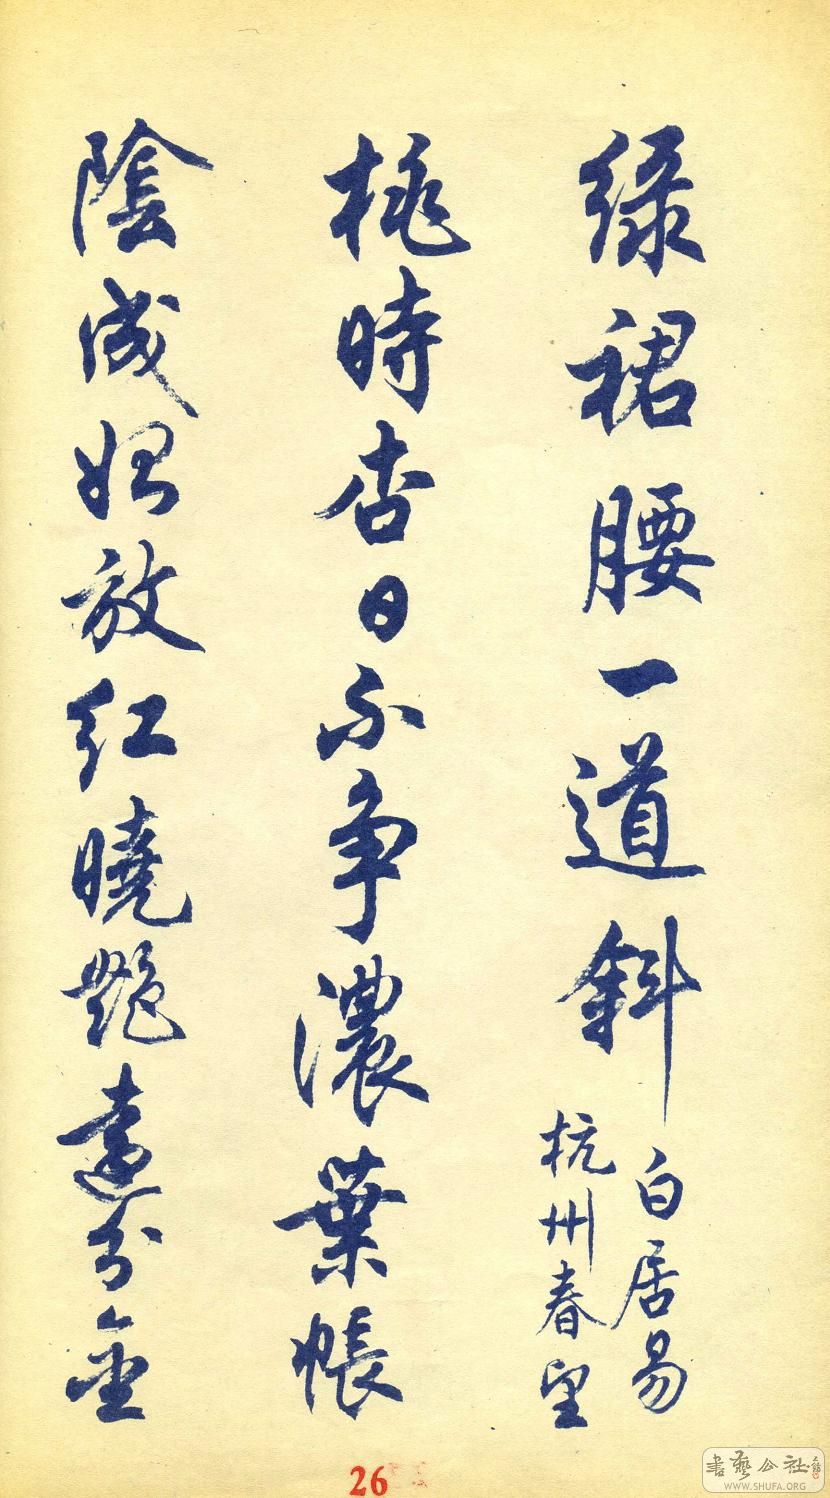 綠裙腰一道斜
白居易
杭州春望
桃時杏日不争濃葉帳
陰成始放紅曉艷遠分金
26
書藝公社
WWW.SHUFA.ORG